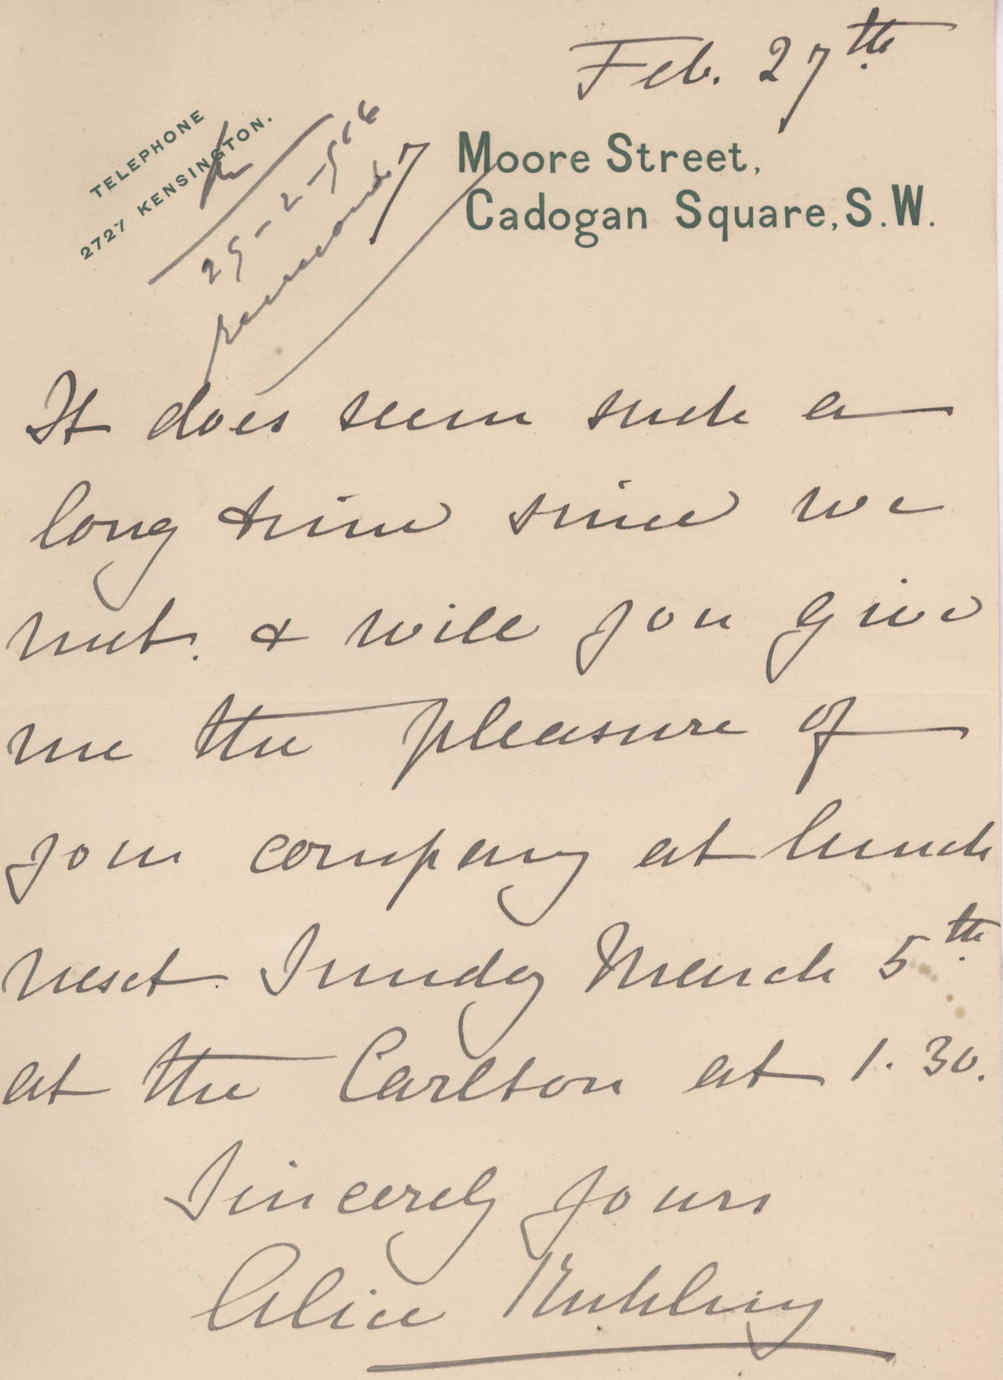 Feb. 27th
TELEPHONE
2727 KENSINGTON.
7 Moore Street,
Cadogan Square, S.W.
29-2-916
It does seem such a
long time since we
met. & will you give
me the pleasure of
your company at lunch
next Sunday March 5th
at the Carlton at 1.30.
Sincerely yours
Alice